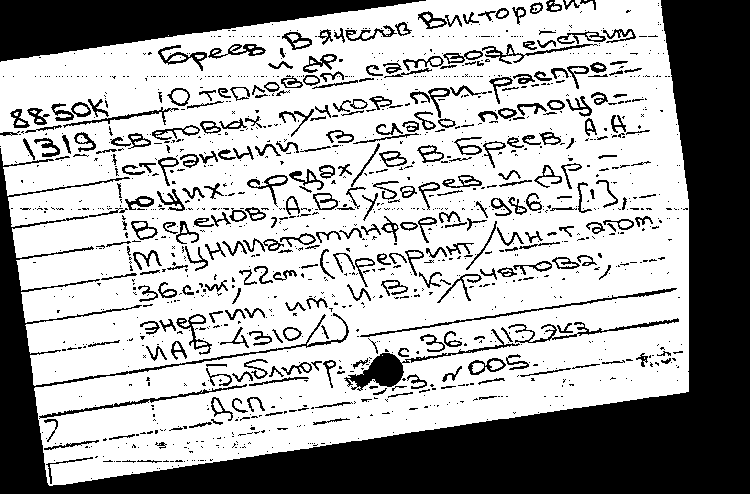 Бреев, Вячеслав Викторович
и др.
88-50К О тепловом самовоздействии
1319 световых пучков при распро-
странении в слабо поглоща-
ющих средах / В.В. Бреев, А.А.
Веденов, А.В. Губарев и др. -
М.: ЦНИИатоминформ, 1986. - [1],
36 с.: ил.; 22 см. - (Препринт / Ин-т атом.
энергии им. И.В. Курчатова;
ИАЭ-4310/1)
Библиогр. с. 36. - 113 экз.
Экз. № 005.
ДСП.